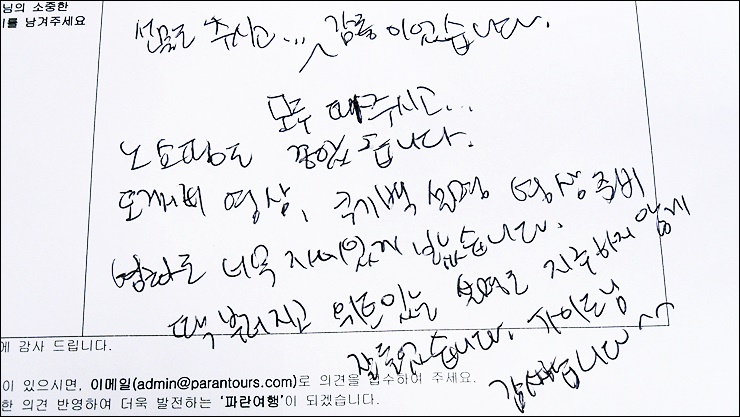 님의 소중한
를 남겨주세요
선물도 주시고... 감동이었습니다.
모두 태워주시고...
노쇼핑도 좋았습니다.
도깨비 영상, 영상 준비
영화도 너무 재미있게 봤습니다.
딱 부러지고 위트있는 설명도 지루하지 않게
잘 들었습니다. 가이드님
감사합니다~^^
에 감사 드립니다.
이 있으시면, 이메일(admin@parantours.com)로 의견을 접수하여 주세요.
한 의견 반영하여 더욱 발전하는 '파란여행'이 되겠습니다.